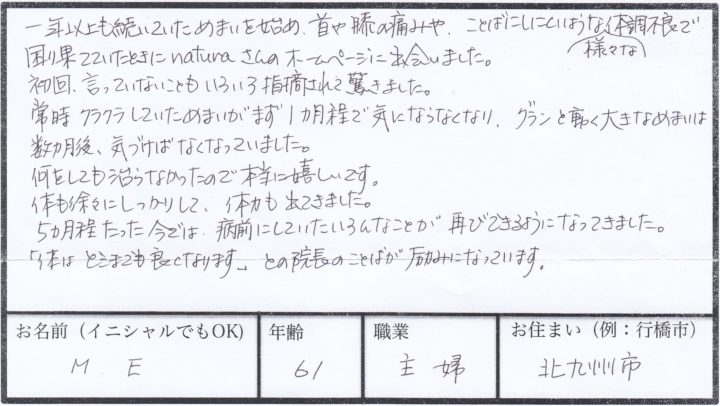 一年以上も続いていためまいを始め、首や膝の痛みや、ことばにしにくいような様々な体調不良で
困り果てていたときにnaturaさんのホームページに出会いました。
初回、言っていないこともいろいろ指摘されて驚きました。
常時クラクラしていためまいがまず1カ月程で気にならなくなり、グランと動く大きなめまいは
数カ月後、気づけばなくなっていました。
何をしても治らなかったので本当に嬉しいです。
体も徐々にしっかりして、体力も出てきました。
5カ月程たった今では、病前にしていたいろんなことが再びできるようになってきました。
「体はどこまでも良くなります」との院長のことばが励みになっています。
お名前（イニシャルでもOK） 年齢 職業 お住まい（例：行橋市）
M E 61 主婦 北九州市